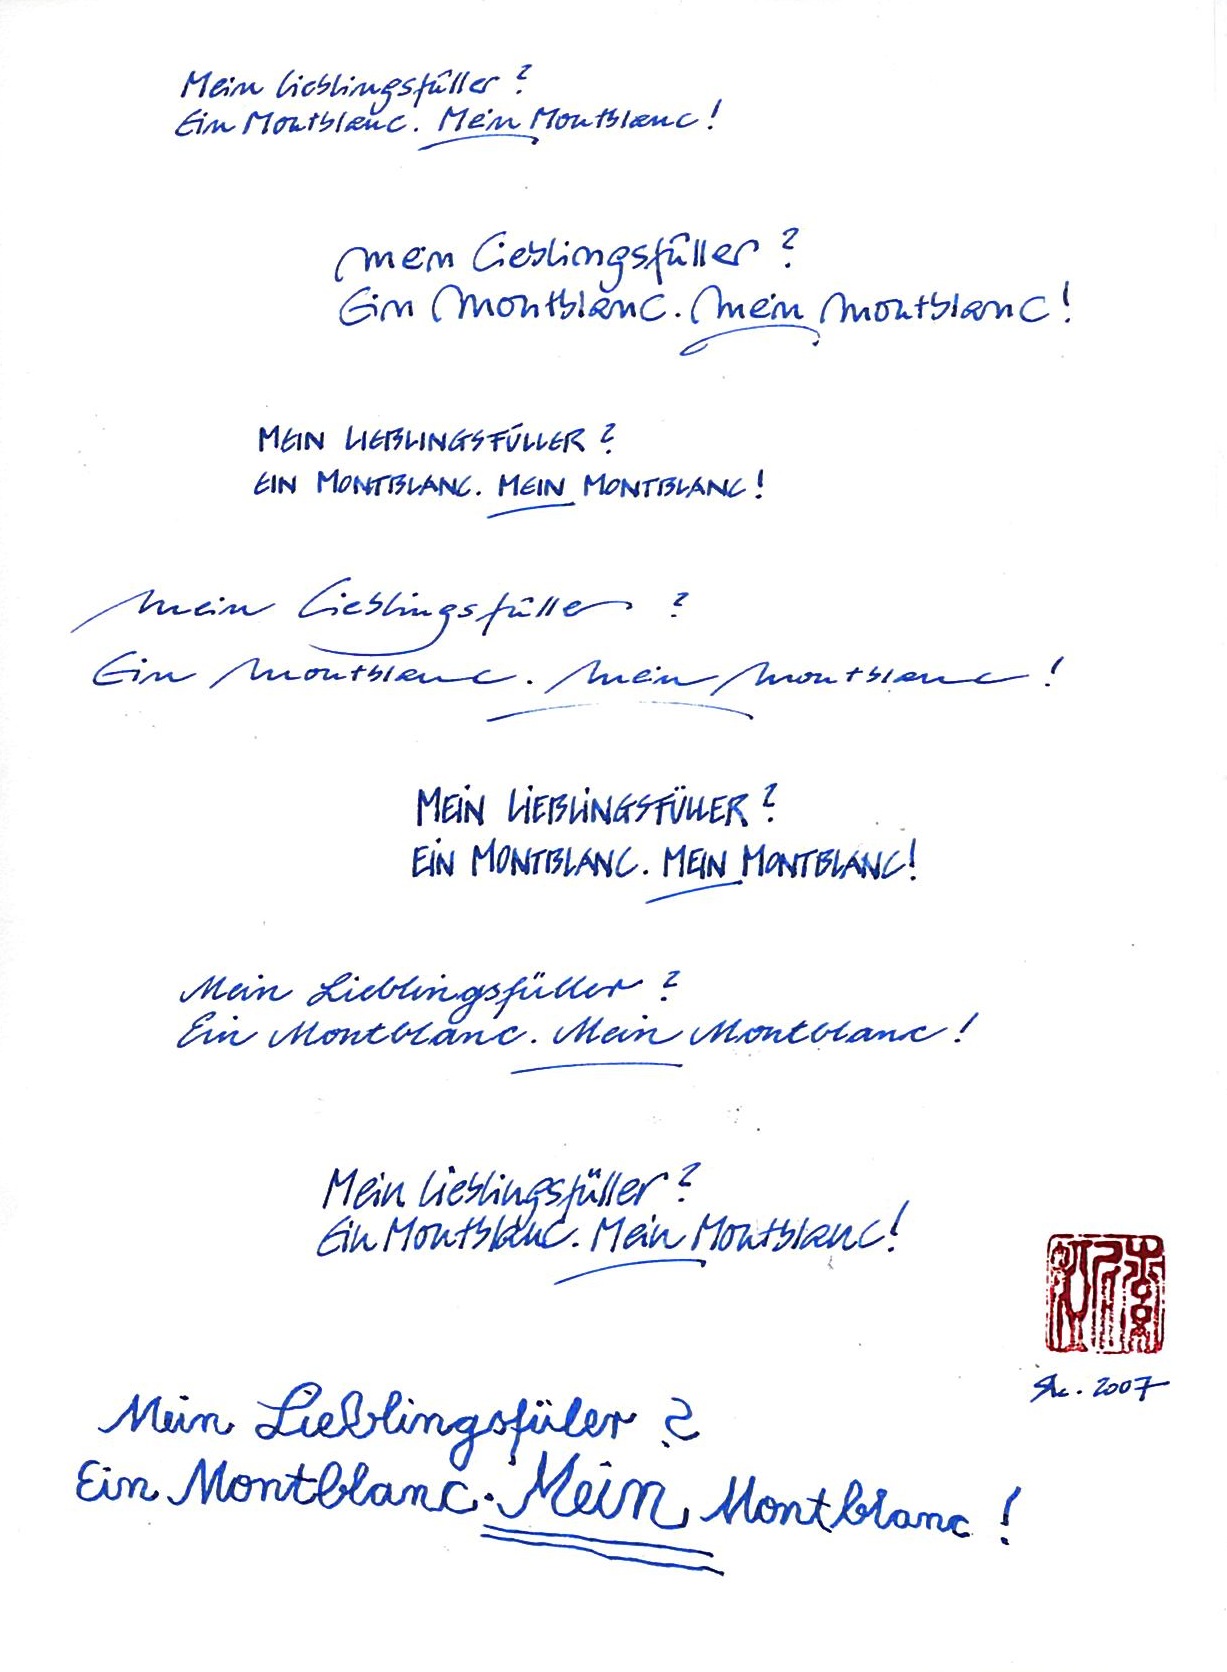 Mein Lieblingsfüller?
Ein Montblanc. Mein Montblanc!
mein Lieblingsfüller?
Ein Montblanc. Mein Montblanc!
MEIN LIEBLINGSFÜLLER?
EIN MONTBLANC. MEIN MONTBLANC!
Mein Lieblingsfüller ?
Ein Montblanc. Mein Montblanc !
MEiN LiEBLiNGSFÜLLER?
EiN MONTBLANC. MEiN MONTBLANC!
Mein Lieblingsfüller ?
Ein Montblanc. Mein Montblanc !
Mein Lieblingsfüller?
Ein Montblanc. Mein Montblanc!
2007
Mein Lieblingsfüler ?
Ein Montblanc. Mein Montblanc !